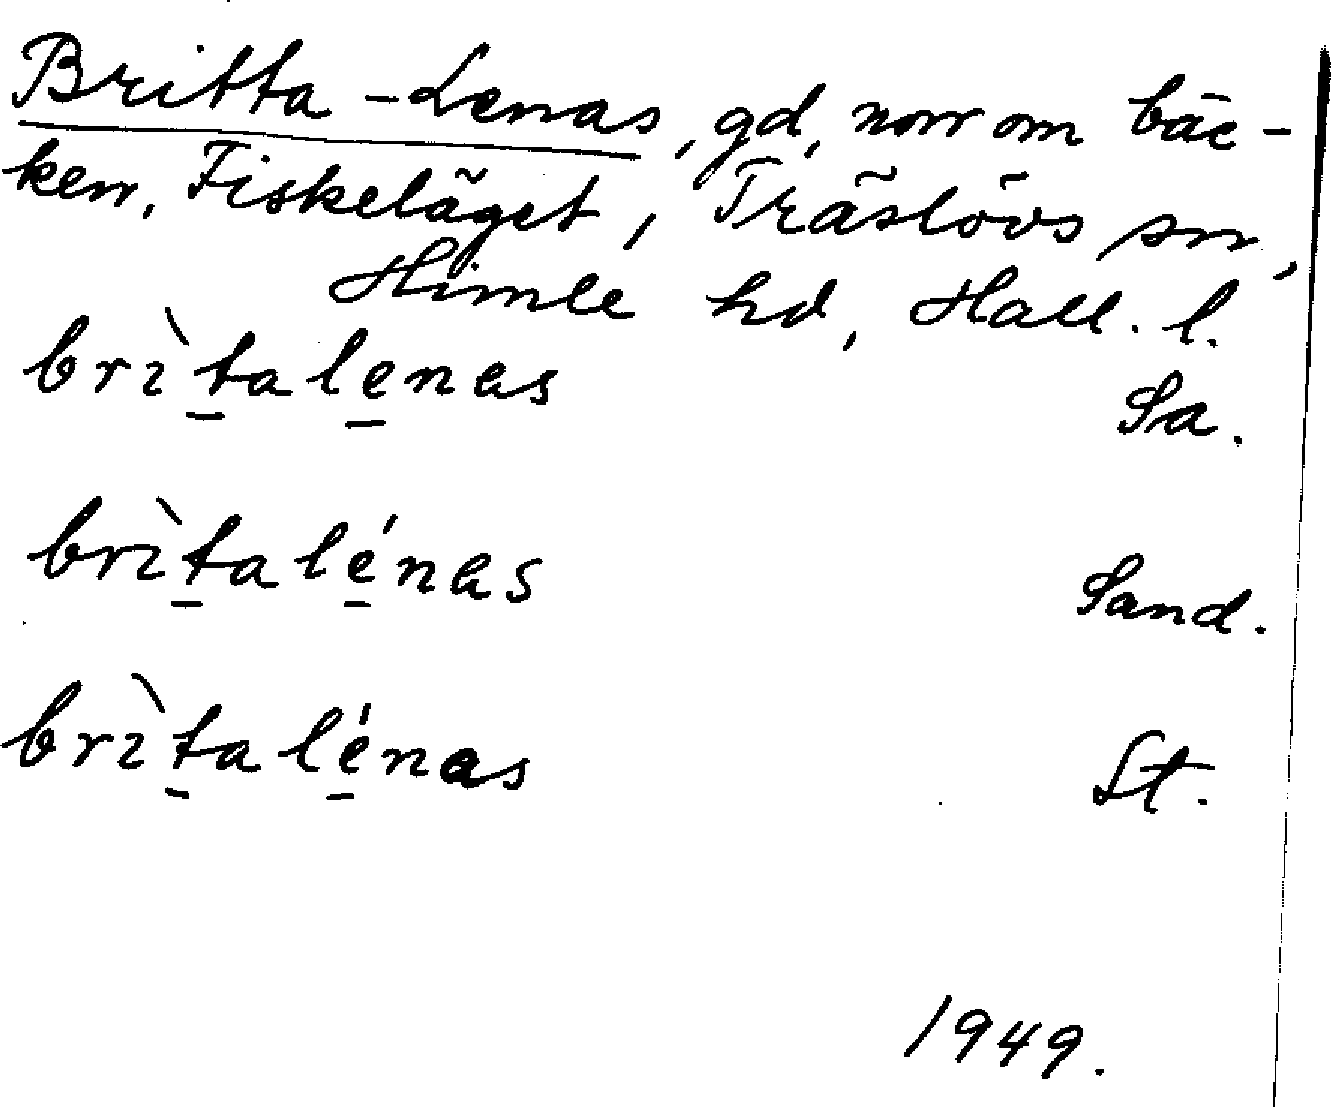 Britta-Lenas, gd, norr om bäc-
ken, Fiskeläget, Träslövs sn,
Himle hd, Hall. l.
brìtalenas Sa.
brìtalénas Sand.
brìtalénas St.
1949.